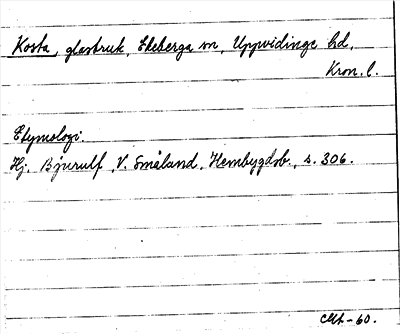 Kosta, glasbruk, Ekeberga sn, Uppvidinge hd,
Kron. l.
Etymologi.
Hj. Bjurulf, V. Småland, Hembygdsb., s. 306.
-60.